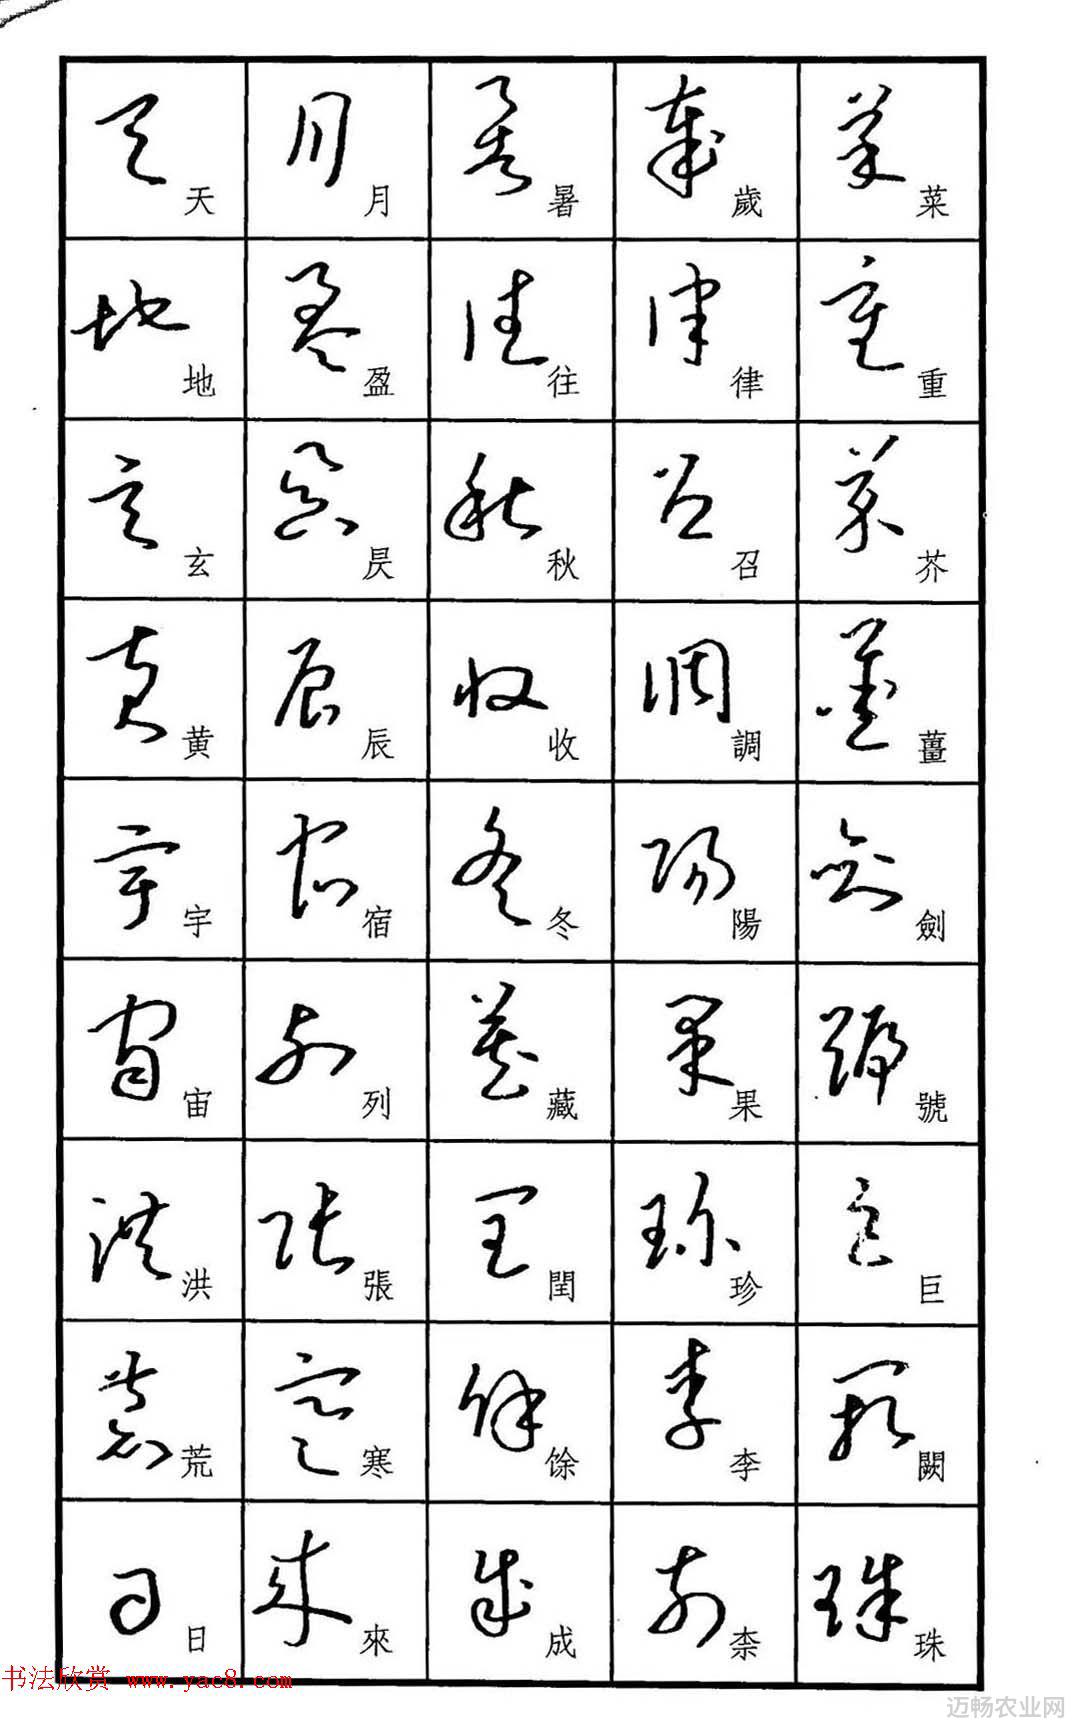 天 月 暑 歲 菜
地 盈 往 律 重
玄 昃 秋 召 芥
黄 辰 收 調 薑
宇 宿 冬 陽 劍
宙 列 藏 果 號
洪 張 閏 珍 巨
荒 寒 馀 李 闕
日 來 成 柰 珠
书法欣赏 www.yac8.com
迈畅农业网